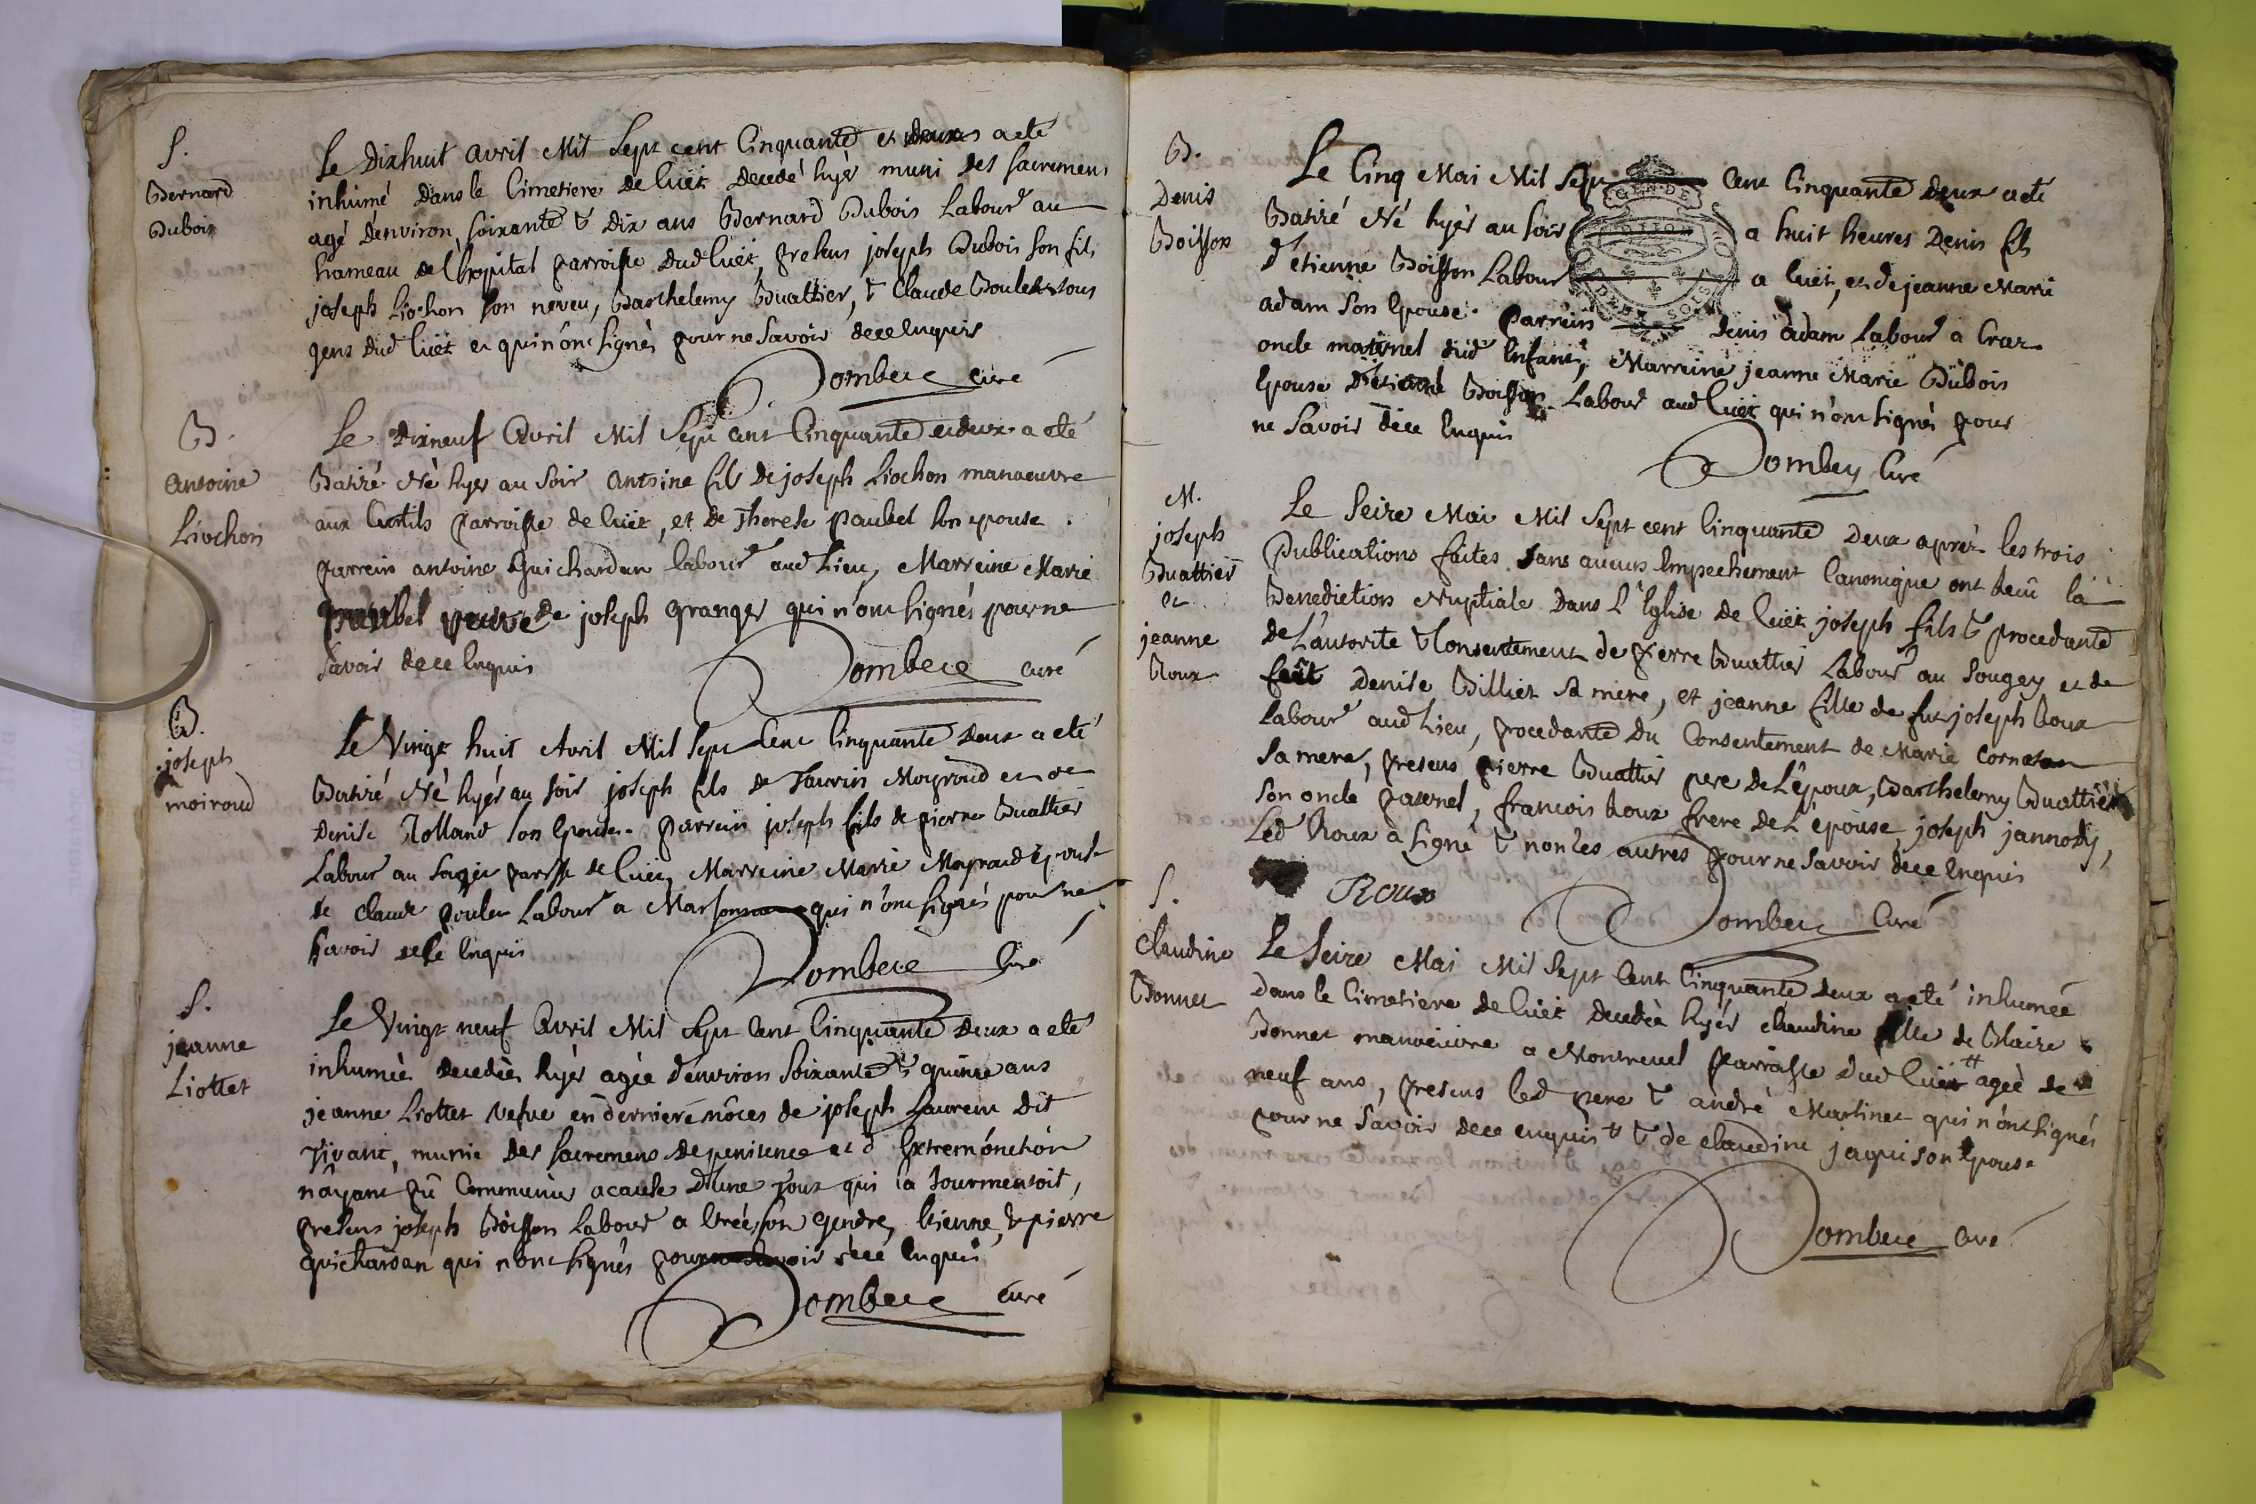 S.
Bernard
Dubois
Le Dixhuit avril Mil Sept cent Cinquante et deux a eté
inhumé dans le Cimetiere de Cuët decedé hyer muni des sacremens
agé d'environ soixante & dix ans Bernard Dubois Labour au
hameau de l'hopital parroisse dud Cuët, presens joseph Dubois son fils
joseph Liochon son neveu, Barthelemy Buattier, & Claude Boulet tous
gens dud Cuët et qui n'ont signés pour ne Savoir de ce Enquis
Dombece curé
B.
antoine
Liochon
Le Dixneuf Avril Mil Sept cent Cinquante et deux a eté
Batisé Né hyer au Soir Antoine fils de joseph Liochon manoeuvre
aux Curtils parroisse de Cuët, et de Therese paubel son epouse.
parrein antoine Guichardan labour aud Lieu, Marreine Marie
paubel veuve de joseph granger qui n'ont signés pour ne
savoir de ce Enquis
Dombece curé
B.
joseph
moiroud
Le Vingt huit Avril Mil Sept Cent Cinquante deux a eté
Batisé Né hyer au soir joseph fils de Taurin Moyroud et de
Denise Rolland son Epouse. parrein joseph fils de pierre Buattier
Labour au Sogei parsse de Cuët, Marreine Marie Moyroud epouse
de Claude poulet Labour a Marsonnas qui n'ont signés pour ne
savoir de ce Enquis
Dombece Curé
S.
jeanne
Liottet
Le Vingt neuf Avril Mil Sept Cent Cinquante deux a eté
inhumée decedée hyer agée d'environ Soixante & quinze ans
jeanne Liottet vefve en derniere nôces de joseph Laurent dit
vivant, munie des sacremens de penitence et d'Extremonction
n'ayant pû Communier a cause d'une Toux qui la tourmentoit,
presens joseph Boisson Labour a Etrée son Gendre, Etienne, & pierre
guichardan qui n'ont signés pour ne Savoir de ce Enquis
Dombece curé
B.
Denis
Boisson
Le Cinq Mai Mil Sept Cent Cinquante deux a eté
Batisé Né hyer au soir a huit heures Denis fils
d'etienne Boisson Labour a Cuët, et de jeanne Marie
adam son Epouse. parrein Denis adam Labour a Craz
oncle maternel dud Enfant, Marreine jeanne Marie Dubois
Epouse d'Etienne Boisson Labour aud Cuët qui n'ont signés pour
ne Savoir de ce Enquis
GEN DE
DEUX SOLS
Dombey Curé
M.
joseph
Buattier
et
jeanne
Roux
Le Seize Mai Mil Sept cent Cinquante Deux après les trois
Publications faites sans aucun Empechement Canonique ont Reçû la
Benediction Nuptiale Dans L'Eglise de Cuët joseph fils & procedante
de L'autorite & Consentement de pierre Buattier Labour au Sougey et de
feüe Denise Billiet sa mere, et jeanne fille de fut joseph Roux
Labour aud Lieu, procedante du Consentement de Marie Corneton
sa mere, presens pierre Buattier pere de L'époux, Barthelemy Buattier
son oncle paternel, francois Roux frere de L'épouse, joseph jannody,
Led Roux a signé & non les autres pour ne Savoir de ce Enquis
Roux
Dombece Curé
S.
Claudine
Bonnet
Le Seize Mai Mil Sept Cent Cinquante deux a eté inhumée
Dans le Cimetiere de Cuët decedée hyer claudine fille de Claire
Bonnet manoeuvre a Montreuel parroisse dud Cuët # agée de
neuf ans, presens led pere & andré Martinet qui n'ont signés
pour ne Savoir de ce enquis # & de claudine jaqui son Epouse
Dombece curé